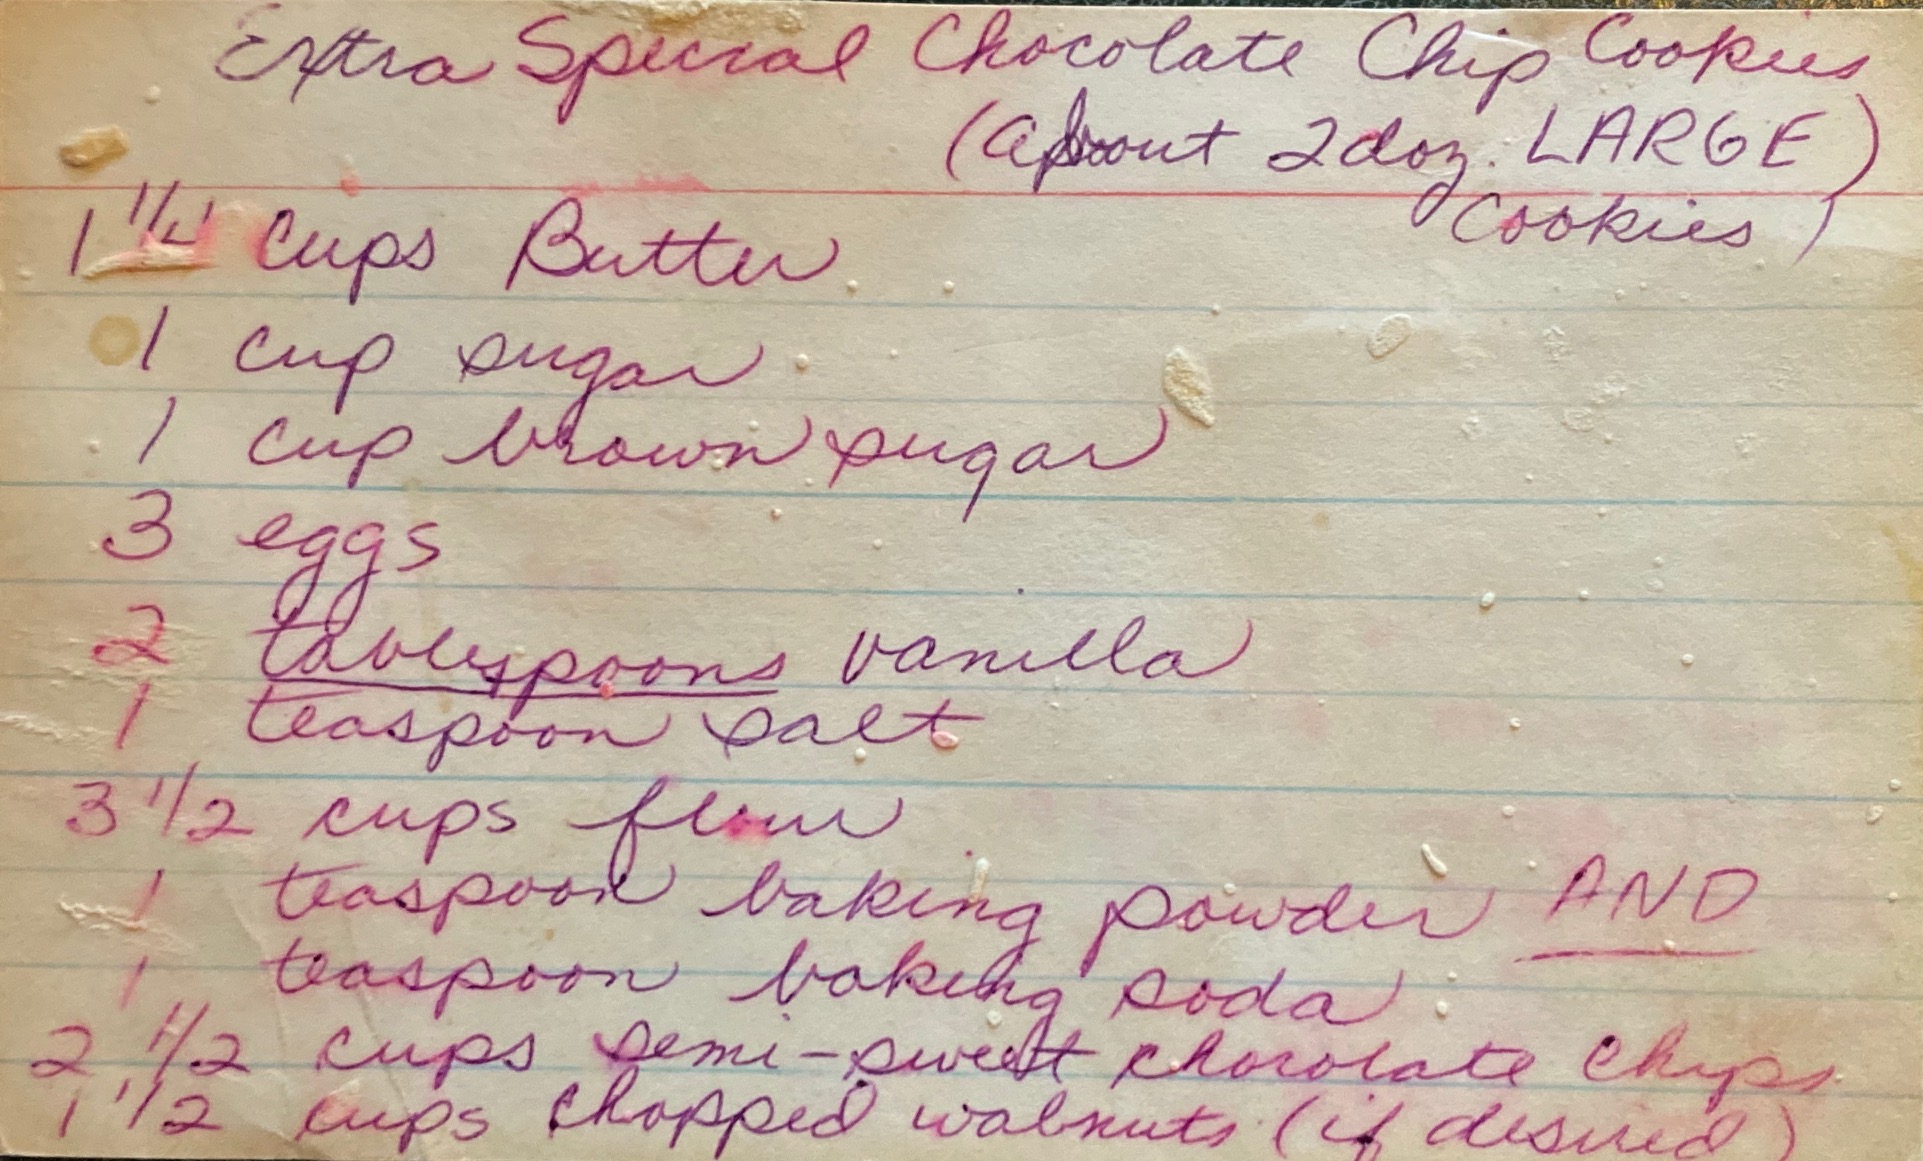 Extra Special Chocolate Chip Cookies
(About 2 doz. LARGE)
Cookies)
1 1/4 cups Butter
1 cup sugar
1 cup brown sugar
3 eggs
2 tablespoons vanilla
1 teaspoon salt
3 1/2 cups flour
1 teaspoon baking powder AND
1 teaspoon baking soda
2 1/2 cups semi-sweet chocolate chips
1 1/2 cups chopped walnuts (if desired)